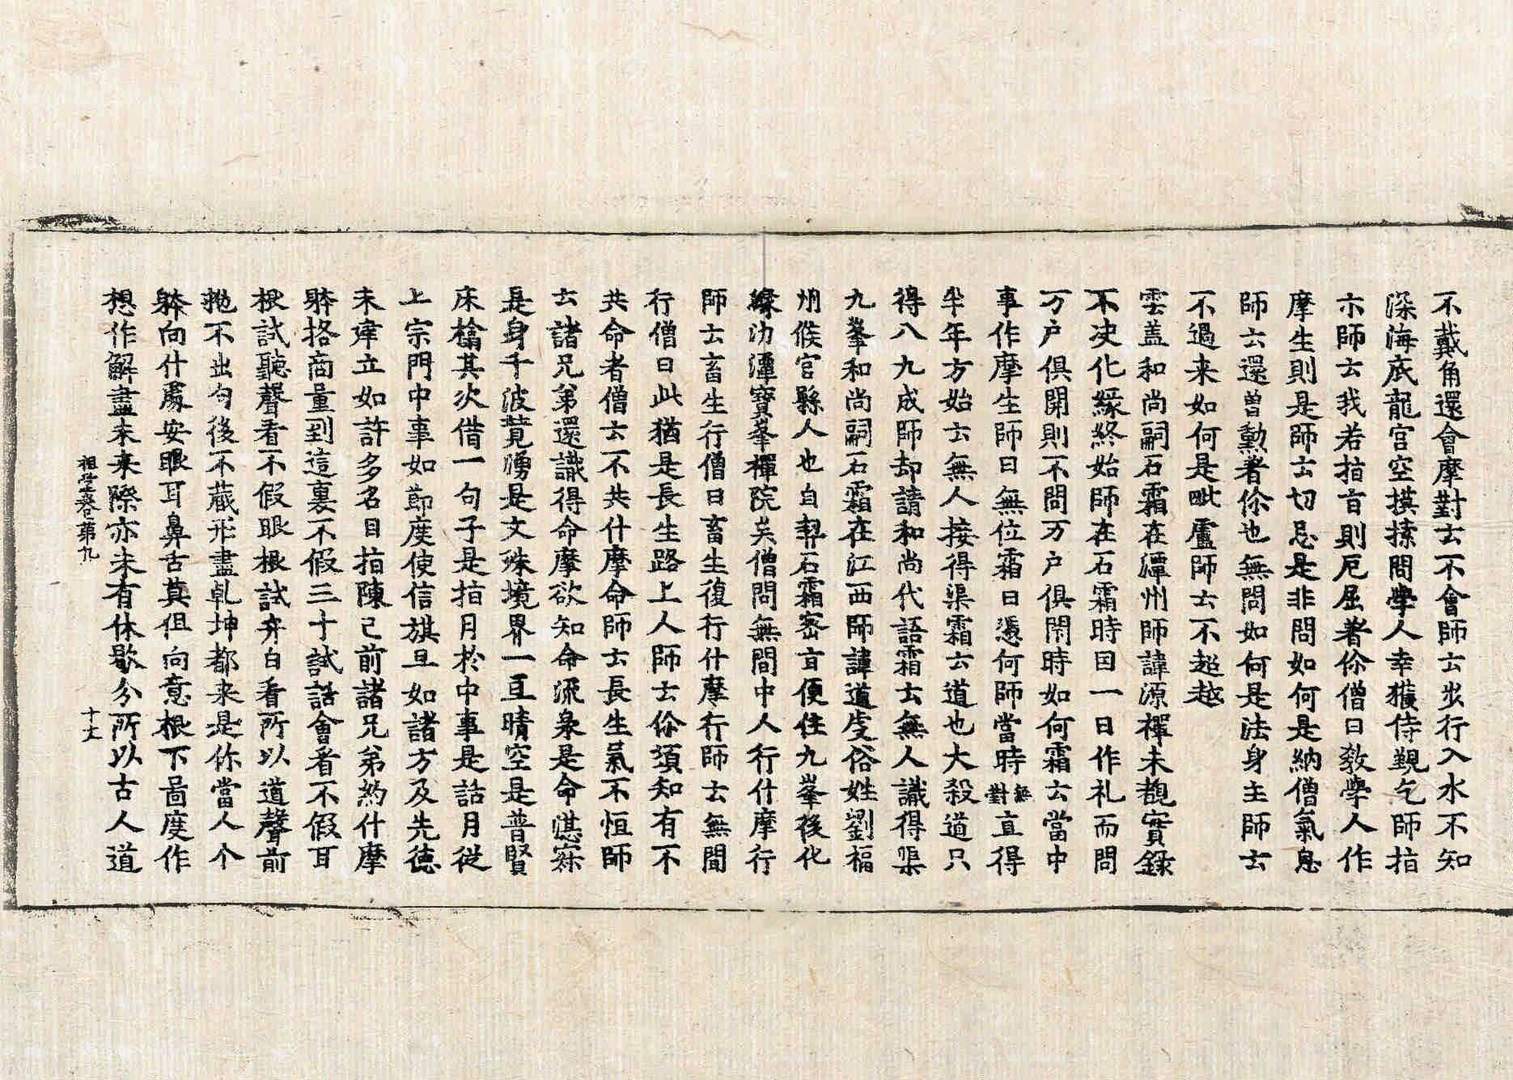 不戴角還會摩對云不會師云出行入水不知
深海底龍宮空摸㨿問學人幸獲侍覲乞師指
示師云我若指盲則厄屈著你僧曰教學人作
摩生則是師云切忌是非問如何是納僧氣息
師云還曾勳著你也無問如何是法身主師云
不過来如何是毗盧師云不超越
雲盖和尚嗣石霜在潭州師諱源禪未覩實錄
不决化緣終始師在石霜時因一日作礼而問
万户俱開則不問万户俱閇時如何霜云當中
事作摩生師曰無位霜曰憑何師當時無對直得
半年方始云無人接得渠霜云道也大殺道只
得八九成師却請和尚代語霜云無人識得渠
九峯和尚嗣石霜在江西師諱道虔俗姓劉福
州候官縣人也自契石霜密盲便住九峯後化
緣泐潭寶峯禪院矣僧問無間中人行什摩行
師云畜生行僧曰畜生復行什摩行師云無間
行僧曰此猶是長生路上人師云你須知有不
共命者僧云不共什摩命師云長生氣不恒師
云諸兄弟還識得命摩欲知命流泉是命湛寂
是身千波競涌是文殊境界一亘晴空是普賢
床榻其次借一句子是指月於中事是話月従
上宗門中事如節度使信旗且如諸方及先德
未庠立如許多名目指陳已前諸兄弟約什摩
躰格商量到這裏不假三寸試話會看不假耳
根試聽聲看不假眼根試弁白看所以道聲前
抛不出句後不藏形盡乹坤都来是你當人个
躰向什處安眼耳鼻舌莫但向意根下啚度作
想作解盡未来際亦未有休歇分所以古人道
祖堂卷苐九
十丈